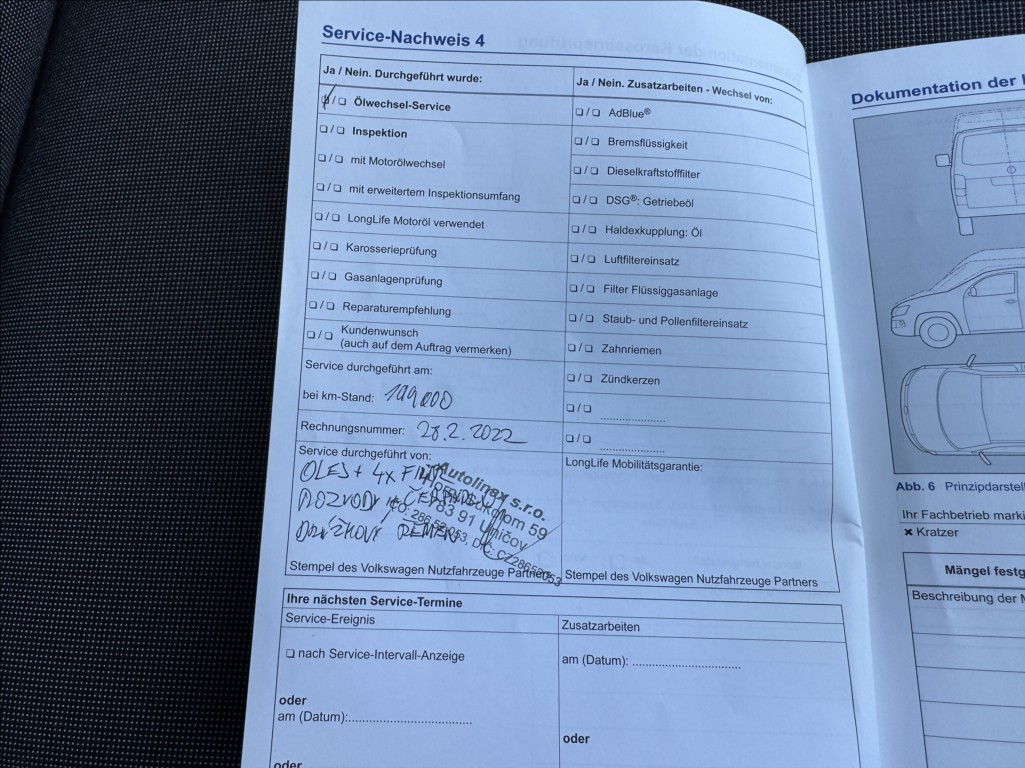 Service-Nachweis 4
Ja / Nein. Durchgeführt wurde:
☑ / ❏ Ölwechsel-Service
❏ / ❏ Inspektion
❏ / ❏ mit Motorölwechsel
❏ / ❏ mit erweitertem Inspektionsumfang
❏ / ❏ LongLife Motoröl verwendet
❏ / ❏ Karosserieprüfung
❏ / ❏ Gasanlagenprüfung
❏ / ❏ Reparaturempfehlung
❏ / ❏ Kundenwunsch
(auch auf dem Auftrag vermerken)
Service durchgeführt am:
bei km-Stand: 199000
Rechnungsnummer: 28.2.2022
Service durchgeführt von:
OLEJ + 4x
ROZVODY +
DRÁŽKOVÝ ŘEMEN
Autolinex s.r.o.
59
783 91 Uničov
IČO: 286 52 053, DIČ: CZ28652053
Stempel des Volkswagen Nutzfahrzeuge Partners
Ja / Nein. Zusatzarbeiten - Wechsel von:
❏ / ❏ AdBlue®
❏ / ❏ Bremsflüssigkeit
❏ / ❏ Dieselkraftstofffilter
❏ / ❏ DSG®: Getriebeöl
❏ / ❏ Haldexkupplung: Öl
❏ / ❏ Luftfiltereinsatz
❏ / ❏ Filter Flüssiggasanlage
❏ / ❏ Staub- und Pollenfiltereinsatz
❏ / ❏ Zahnriemen
❏ / ❏ Zündkerzen
❏ / ❏ ....................
❏ / ❏ ....................
LongLife Mobilitätsgarantie:
Stempel des Volkswagen Nutzfahrzeuge Partners
Ihre nächsten Service-Termine
Service-Ereignis
❏ nach Service-Intervall-Anzeige
oder
am (Datum):...............................
oder
Zusatzarbeiten
am (Datum): ...............................
oder
Dokumentation der
Abb. 6 Prinzipdarstel
Ihr Fachbetrieb marki
✖ Kratzer
Mängel festg
Beschreibung der